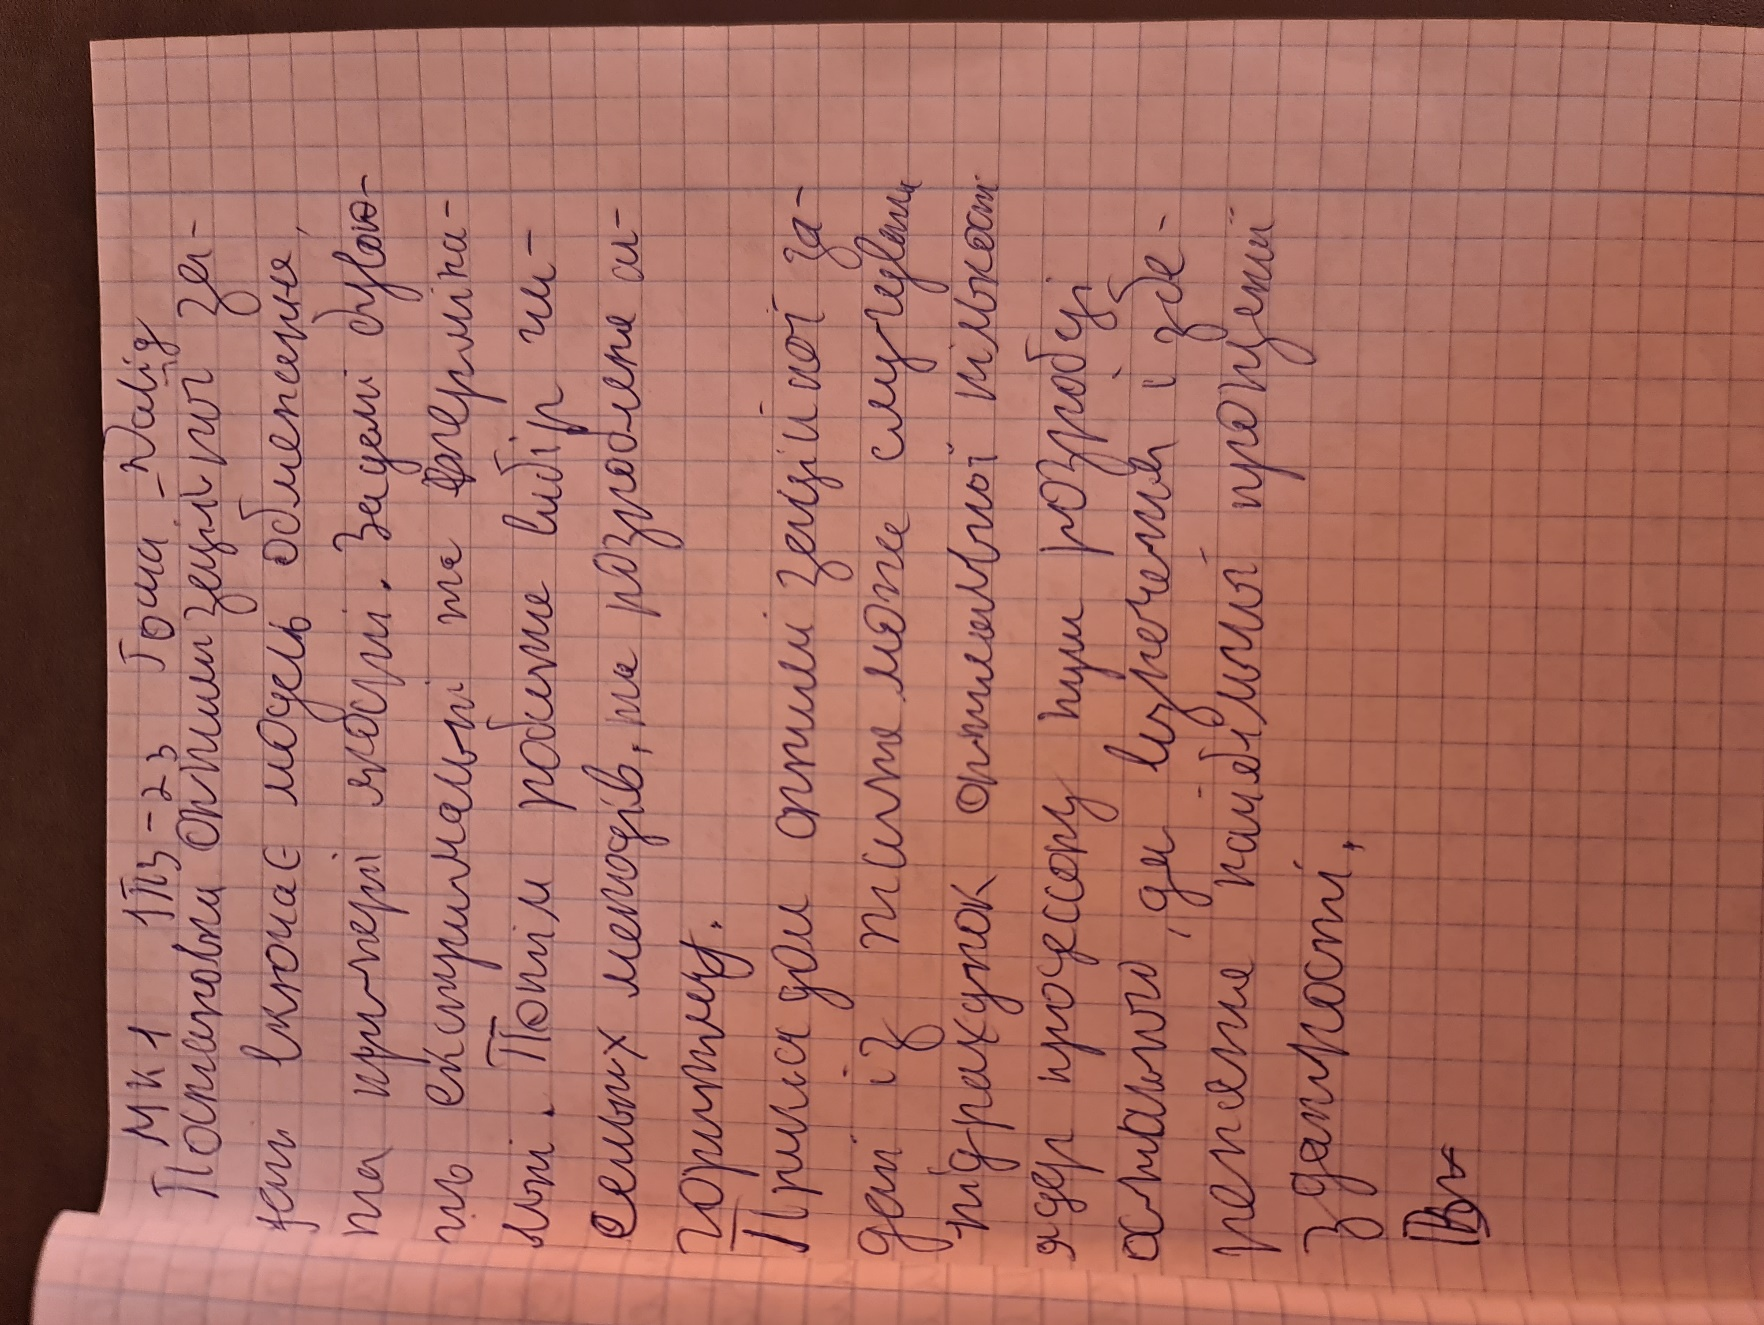 МК1 1ПЗ-23 Гоша Давід
Постановка оптимізаційної за-
дачі включає модель обмежене,
та кри-терії якості. Задачі бува-
ють екстримальні та терміна-
льні. Потім робите вибір чи-
сельних методів, та розроблена ал-
горитму.
Прикладом оптимізаційної за-
дачі із життя може слугувати
підрахунок оптимальної кількості
ядер процессору при розробці
останього, для визначений і збе-
реження найбільшої процекий
здатності,